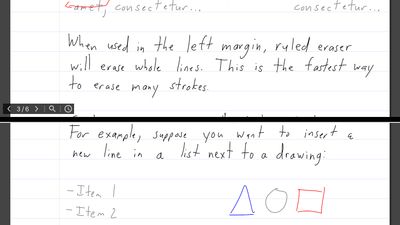 amet, consectetur...
consectetur...
When used in the left margin, ruled eraser
will erase whole lines. This is the fastest way
to erase many strokes.
3/6
For example, suppose you want to insert a
new line in a list next to a drawing:
- Item 1
- Item 2